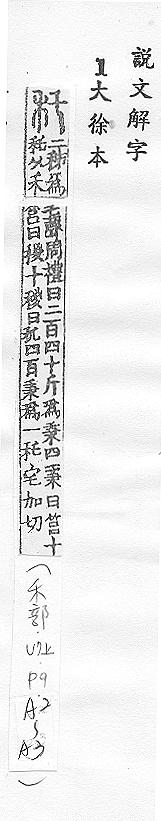 說文解字
1大徐本
秅 二秭爲
秅从禾
乇聲周禮曰二百四十斤爲秉四秉曰筥十
筥曰稯十稯曰秅四百秉爲一秅宅加切
(禾部
P9.
A2
~
A3
)